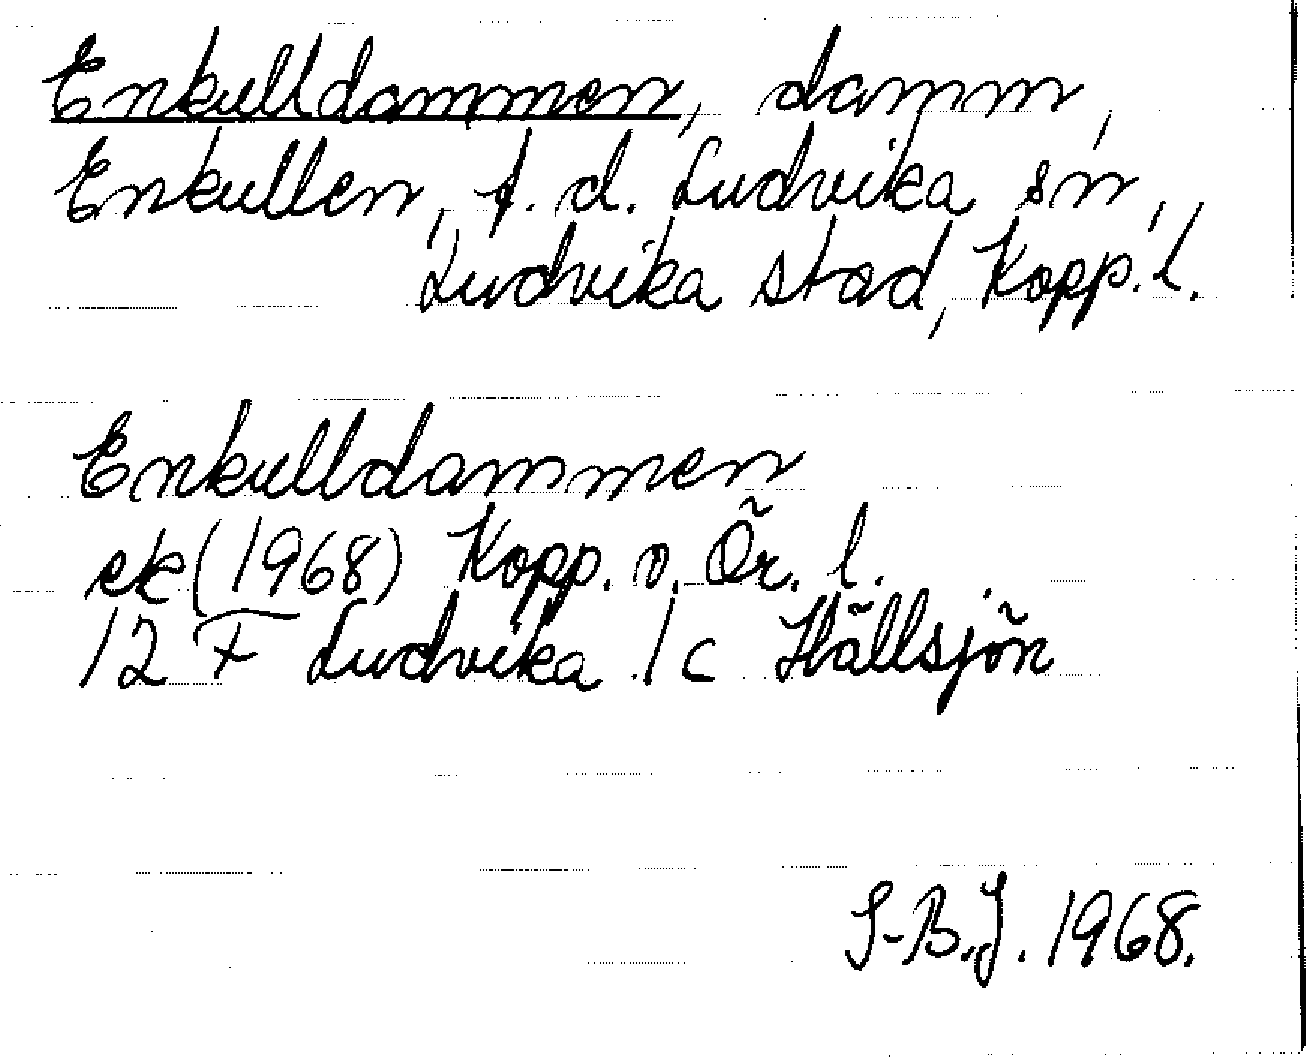 Enkulldammen, damm,
Enkullen, f.d. Ludvika sn,
Ludvika stad, Kopp. l.
Enkulldammen
ek (1968) Kopp. o. Ör. l.
12 F Ludvika 1 c Hällsjön
S-B.J. 1968.